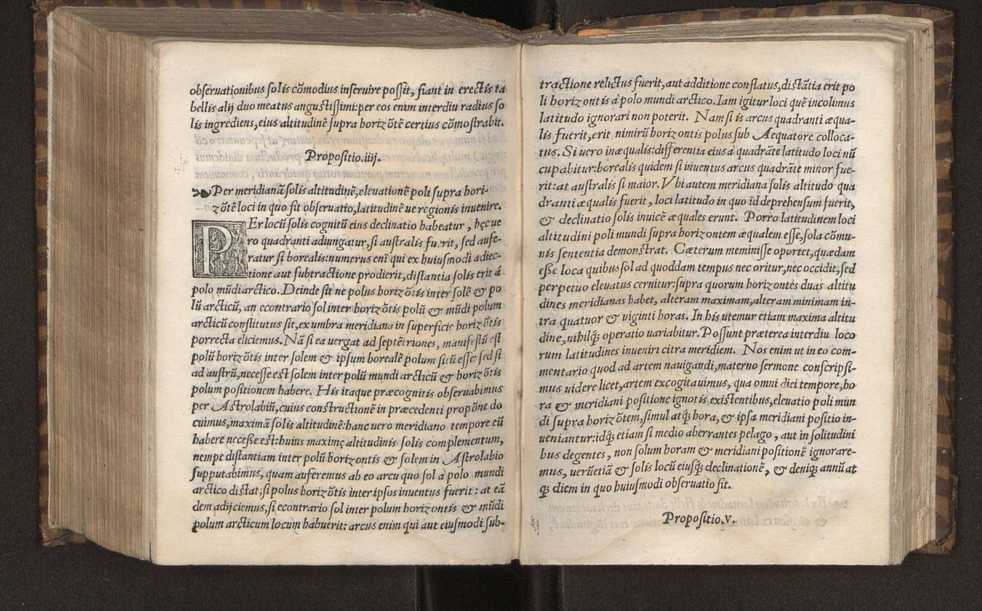 obseruationibus solis cōmodius inseruire possit, fiant in erectis ta
bellis alij duo meatus angustissimi: per eos enim interdiu radius so
lis ingrediens, eius altitudinē supra horizōtē certius cōmostrabit.
Propositio.iiij.
Per meridianā solis altitudinē, eleuationē poli supra hori-
zōtē loci in quo sit obseruatio, latitudinē ue regionis inuenire.
PEr locū solis cognitū eius declinatio habeatur, hęc ue
ro quadranti adiungatur, si australis fuerit, sed aufe-
ratur si borealis: numerus enī qui ex huiusmodi adiec-
tione aut subtractione prodierit, distantia solis erit á
polo mūdi arctico. Deinde sit ne polus horizōtis inter solē & po
lū arcticū, an econtrario sol inter horizōtis polū & mūdi polum
arcticū constitutus sit, ex umbra meridiana in superficie horizōtis
porrecta eliciemus. Nā si ea uergat ad septētriones, manifestū est
polū horizōtis inter solem & ipsum borealē polum sitū esse: sed si
ad austrū, necesse est solem inter polū mundi arcticū & horizōtis
polum positionem habere. His itaque præcognitis obseruabimus
per Astrolabiū, cuius constructionē in præcedenti propōne do
cuimus, maximā solis altitudinē: hanc uero meridiano tempore eū
habere necesse est: huius maximę altitudinis solis complementum,
nempe distantiam inter polū horizontis & solem in Astrolabio
supputabimus, quam auferemus ab eo arcu quo sol á polo mundi
arctico distat, si polus horizōtis inter ipsos inuentus fuerit: at eā
dem adijciemus, si econtrario sol inter polum horizontis & mūdi
polum arcticum locum habuerit: arcus enim qui aut eiusmodi sub-
tractione relictus fuerit, aut additione conflatus, distātia erit po
li horizontis á polo mundi arctico. Iam igitur loci quē incolumus
latitudo ignorari non poterit. Nam si is arcus quadranti æqua-
lis fuerit, erit nimirū horizontis polus sub Aequatore colloca-
tus. Si uero inæqualis: differentia eius á quadrāte latitudo loci nū
cupabitur: borealis quidem si inuentus arcus quadrāte minor fue-
rit: at australis si maior. Vbi autem meridiana solis altitudo qua
dranti æqualis fuerit, loci latitudo in quo id deprehensum fuerit,
& declinatio solis inuicē æquales erunt. Porro latitudinem loci
altitudini poli mundi supra horizontem æqualem esse, sola cōmu-
nis sententia demonstrat. Cæterum meminisse oportet, quædam
esse loca quibus sol ad quoddam tempus nec oritur, nec occidit, sed
perpetuo eleuatus cernitur: supra quorum horizontēs duas altitu
dines meridianas habet, alteram maximam, alteram minimam in-
tra quatuor & uiginti horas. In his utemur etiam maxima altitu
dine, nihilq́; operatio uariabitur. Possunt præterea interdiu loco
rum latitudines inueniri citra meridiem. Nos enim ut in eo com-
mentario quod ad artem nauigandi, materno sermone conscripsi-
mus uidere licet, artem excogitauimus, qua omni diei tempore, ho
ra & meridiani positione ignotis existentibus, eleuatio poli mun
di supra horizōtem, simul atq́; hora, & ipsa meridiani positio in-
ueniantur: idq́; etiam si medio aberrantes pelago, aut in solitudini
bus degentes, non solum horam & meridiani positionē ignorare-
mus, uerūetiā & solis locū eiusq́; declinationē, & deniq́; annū at
q́; diem in quo huiusmodi obseruatio sit.
Propositio.v.